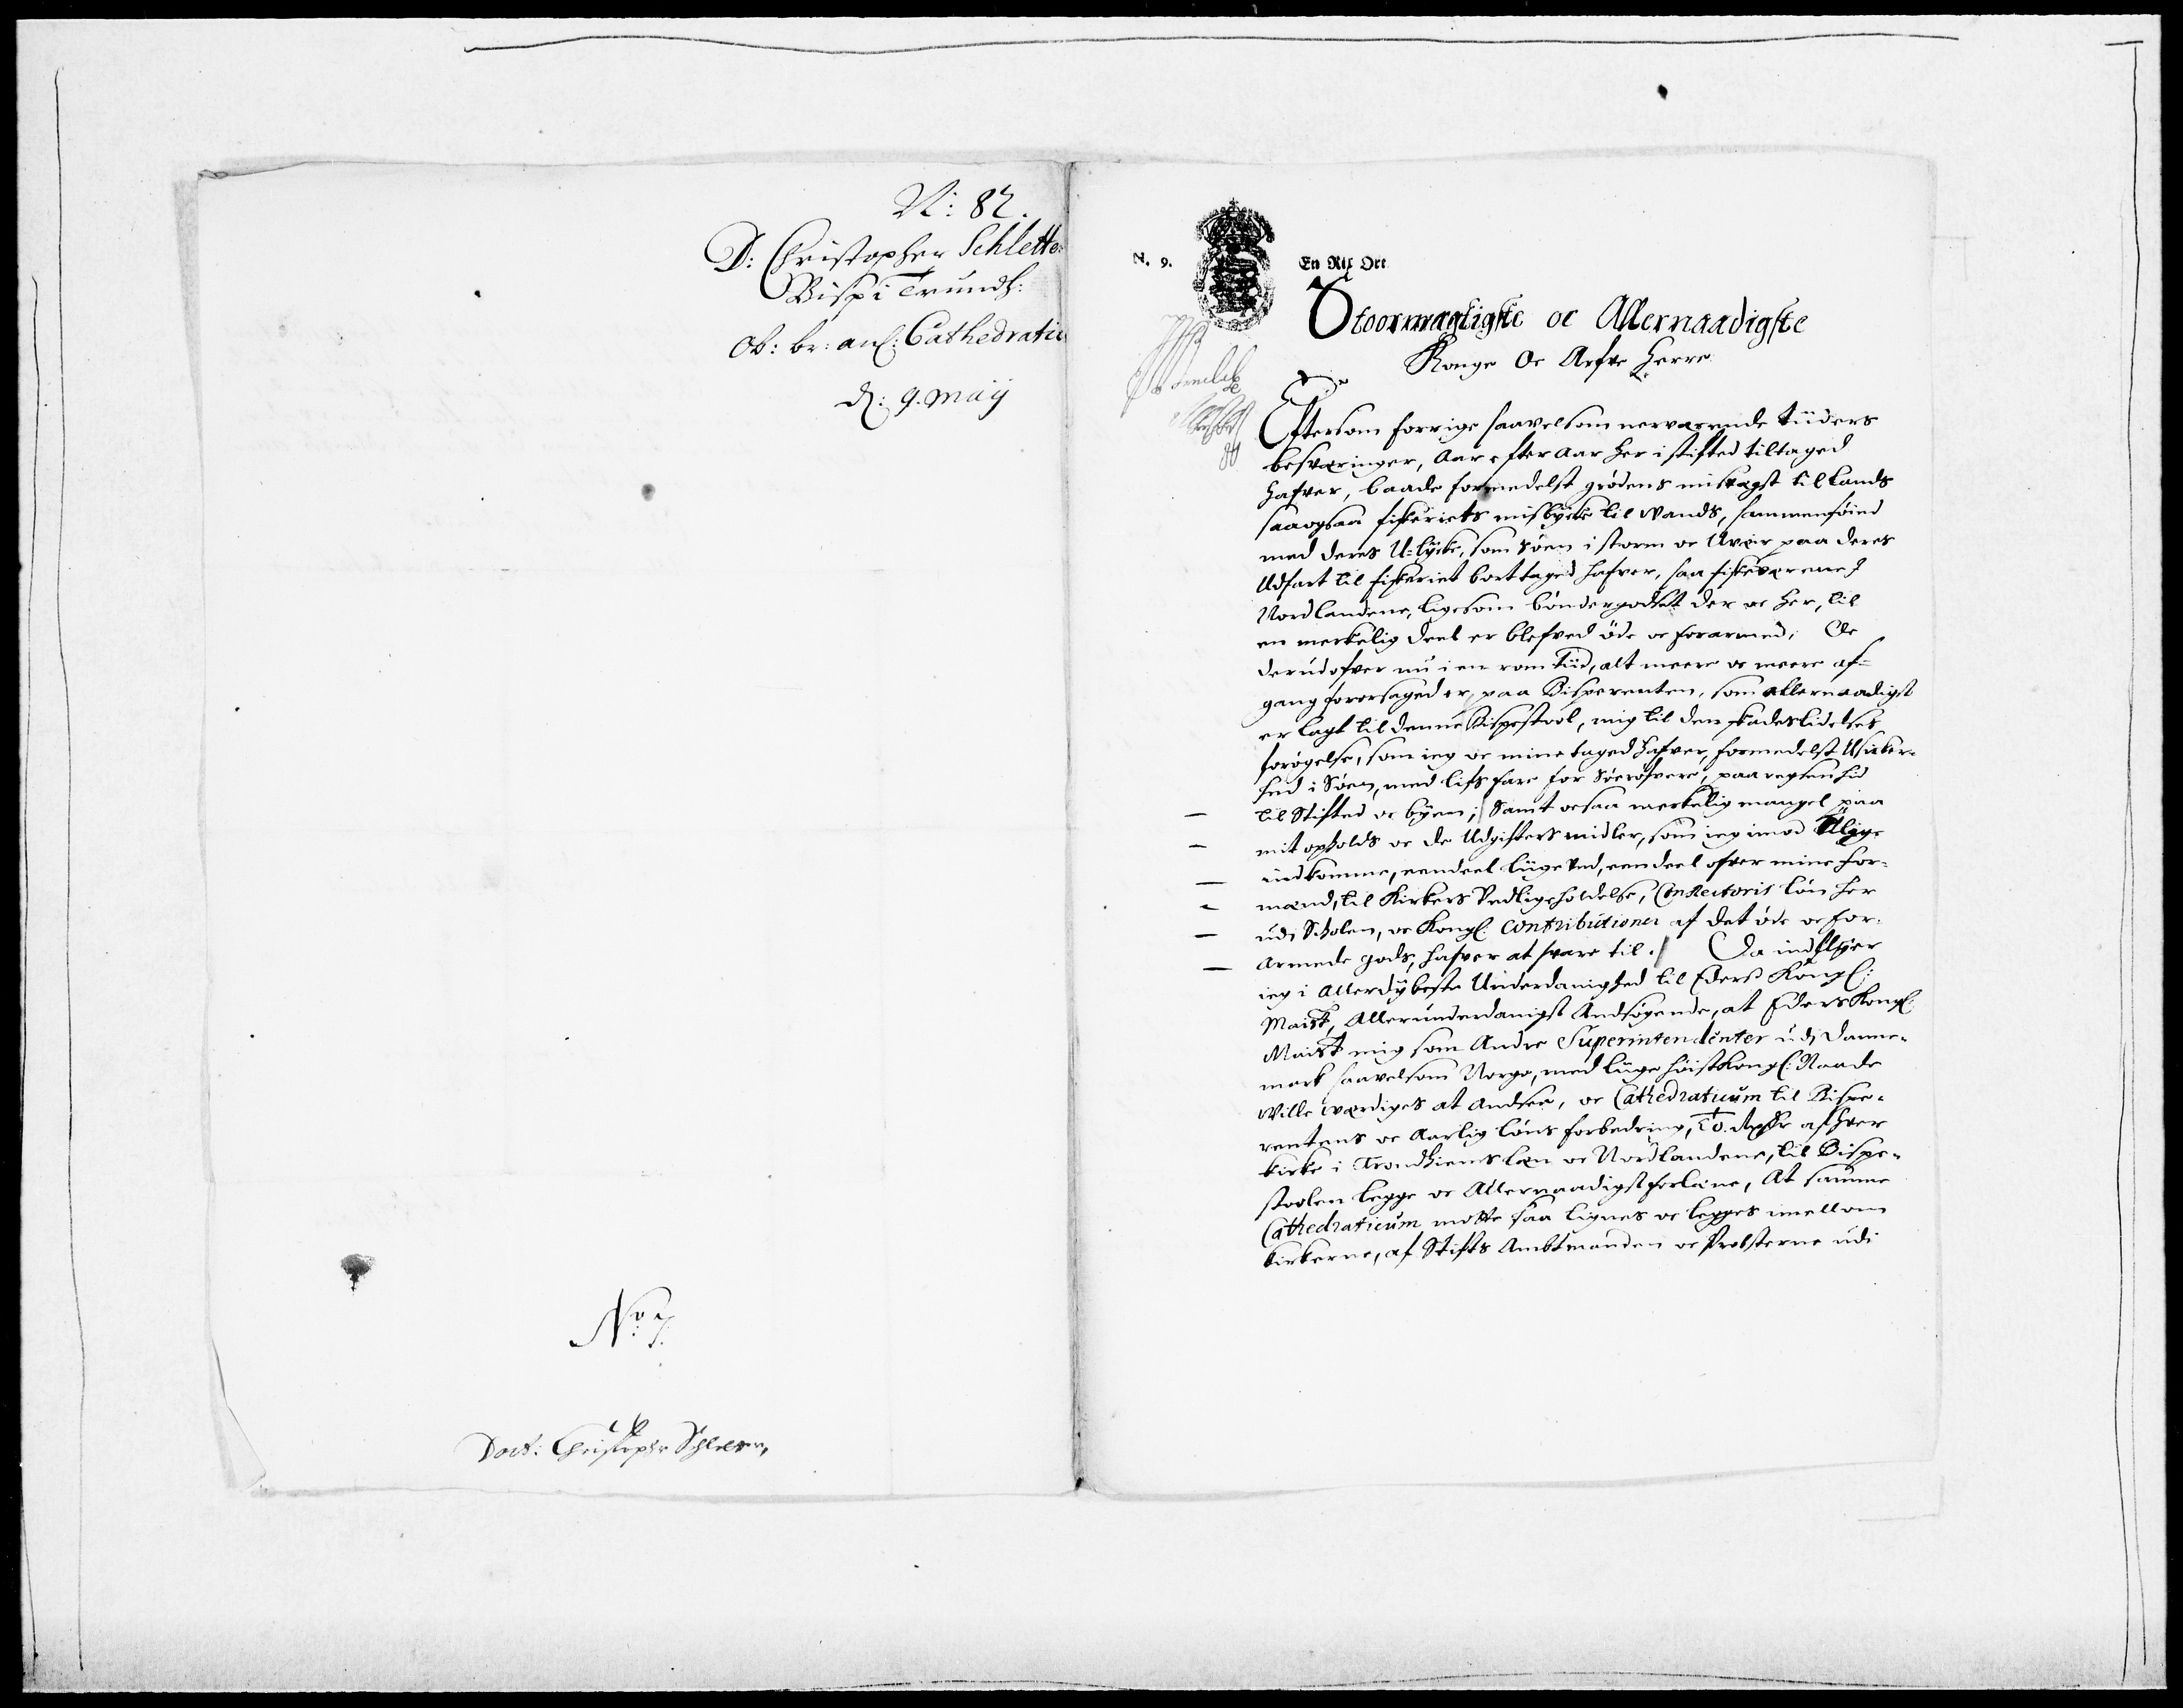 N: 82.
D: Christopher Schlette
Bisp i Trundh:
Ob: br: anl: Cathedratic
d: 9. Maij
No 7.
Doct: Christopher Schletter,
N. 9.
En Rix Ort
Stoormegtigste oc Allernaadigste
Konge Oc Arfve Herre
Eftersom forrige saavelsom nerværende tiiders
besværinger, Aar efter Aar her i stifted tiltaged
hafver, baade formedelst grødens misvegst til Lands
saaogsaa fiskeriets mislycke til Vands, sammenføied
med deres U-lycke, som Søen i storm oc Uvær paa deres
Udfart til fiskeriet borttaged hafver, saa fiskeværene I
Nordlandene, ligesom bøndergodset der oc her, til
en merkelig deel er blefved øde oc forarmed; Oc
derudofver nu i en rom tiid, alt meere oc meere af-
gang fororsaged er, paa Bisperenten, som allernaadigst
er lagt til denne Bispestool, mig til den skadeslidelses
forøgelse, som ieg oc mine taged hafver, formedelst Usicker-
hed i Søen, med lifs fare for Søerøfvere, paa reysen hid
til Stifted oc byen; Samt ocsaa merkelig mangel paa
mit ophold oc de Udgifters midler, som ieg imod Ulige
indkomme, eendeel liige ved, eendeel ofver mine For-
mænd, til Kirkers Vedligeholdelse, ConRectoris løn her
udi Scholen, oc Kongl: Contributioner af det øde oc for-
armede gods, hafver at svare til. Da indflyer
ieg i Allerdybeste Underdanighed til Eders Kongl:
Maist, Allerunderdanigst Andsøgende, at Eders Kongl:
Maist mig som Andre Superintendenter udj Danne-
mark saavelsom Norge, med liige høist Kongl: Naade
Ville værdiges at Andsee, oc Cathedraticum til Bispe-
rentens oc Aarlig løns forbedring, To Rixdr af hver
kirke i Trondhiems læn oc Nordlandene, til Bispe-
stoolen legge oc Allernaadigst forleene, At samme
Cathedraticum motte saa lignes oc legges imellom
kirkerne, af Stifts Ambtmanden oc Probsterne udi